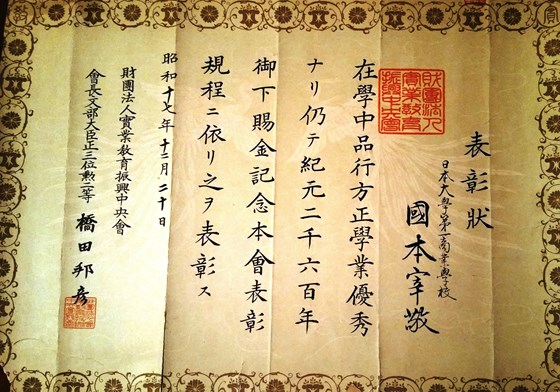 表彰狀
日本大學第一商業學校
國本宰敬
在學中品行方正學業優秀
ナリ仍テ紀元二千六百年
御下賜金記念本會表彰
規程ニ依リ之ヲ表彰ス
昭和十七年十二月二十日
財團法人實業敎育振興中央會
會長文部大臣正三位勲二等 橋田邦彦
財團法人
實業敎育
振興中央會